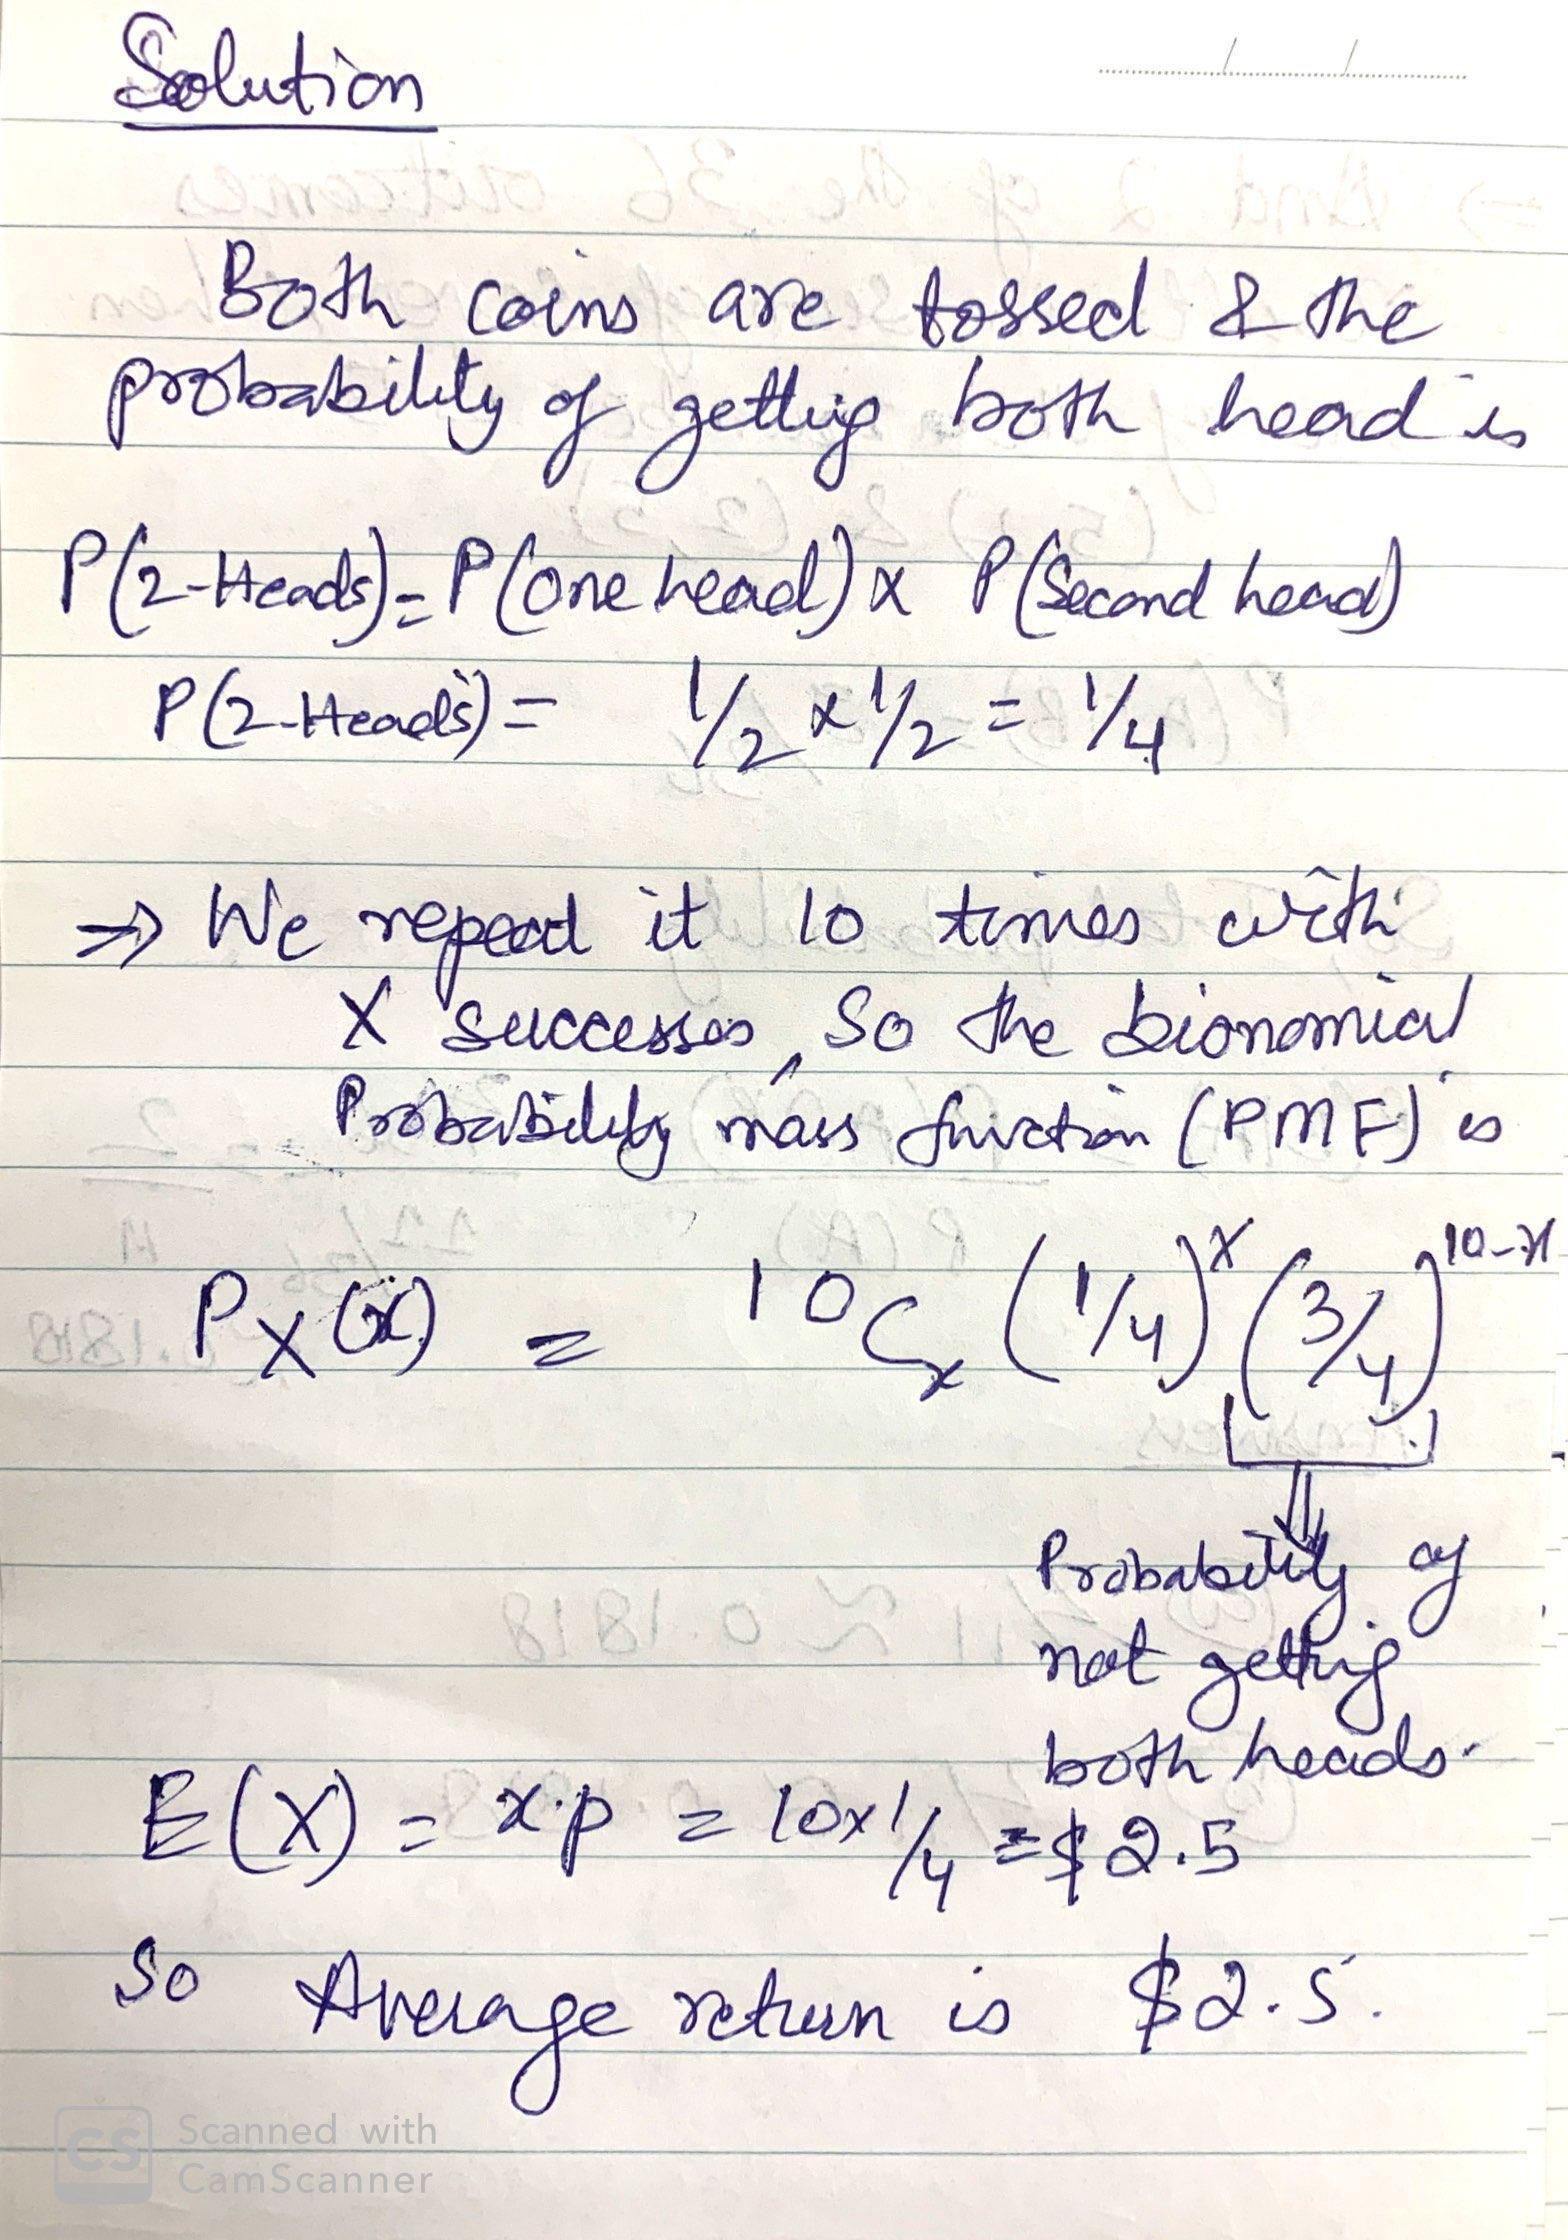 Solution
Both coins are tossed & the
probability of getting both head is
P(2-Heads) = P(one head) x P(Second head)
P(2-Heads) = 1/2 x 1/2 = 1/4
⇒ We repeat it 10 times with
X successes, So the bionomial
Probability mass function (PMF) is
P_X(x) = ¹⁰C_x (1/4)^x (3/4)^(10-x)
Probability of
not getting
both heads.
E(X) = x.p = 10x1/4 = $2.5
So Average return is $2.5.
CS Scanned with
CamScanner